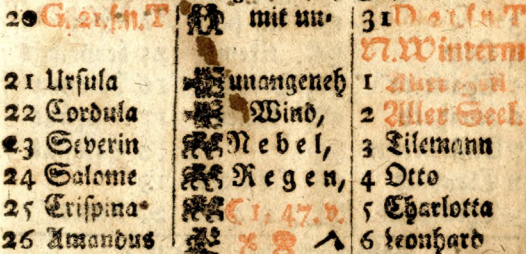 20 G. 21. s. n. T mit un- 31
N. Winterm
21 Ursula unangeneh 1
22 Cordula Wind, 2 Aller Seel.
23 Severin Nebel, 3 Tilemann
24 Salome Regen, 4 Otto
25 Crispina C 1, 47. v. 5 Charlotta
26 Amandus 6 Leonhard